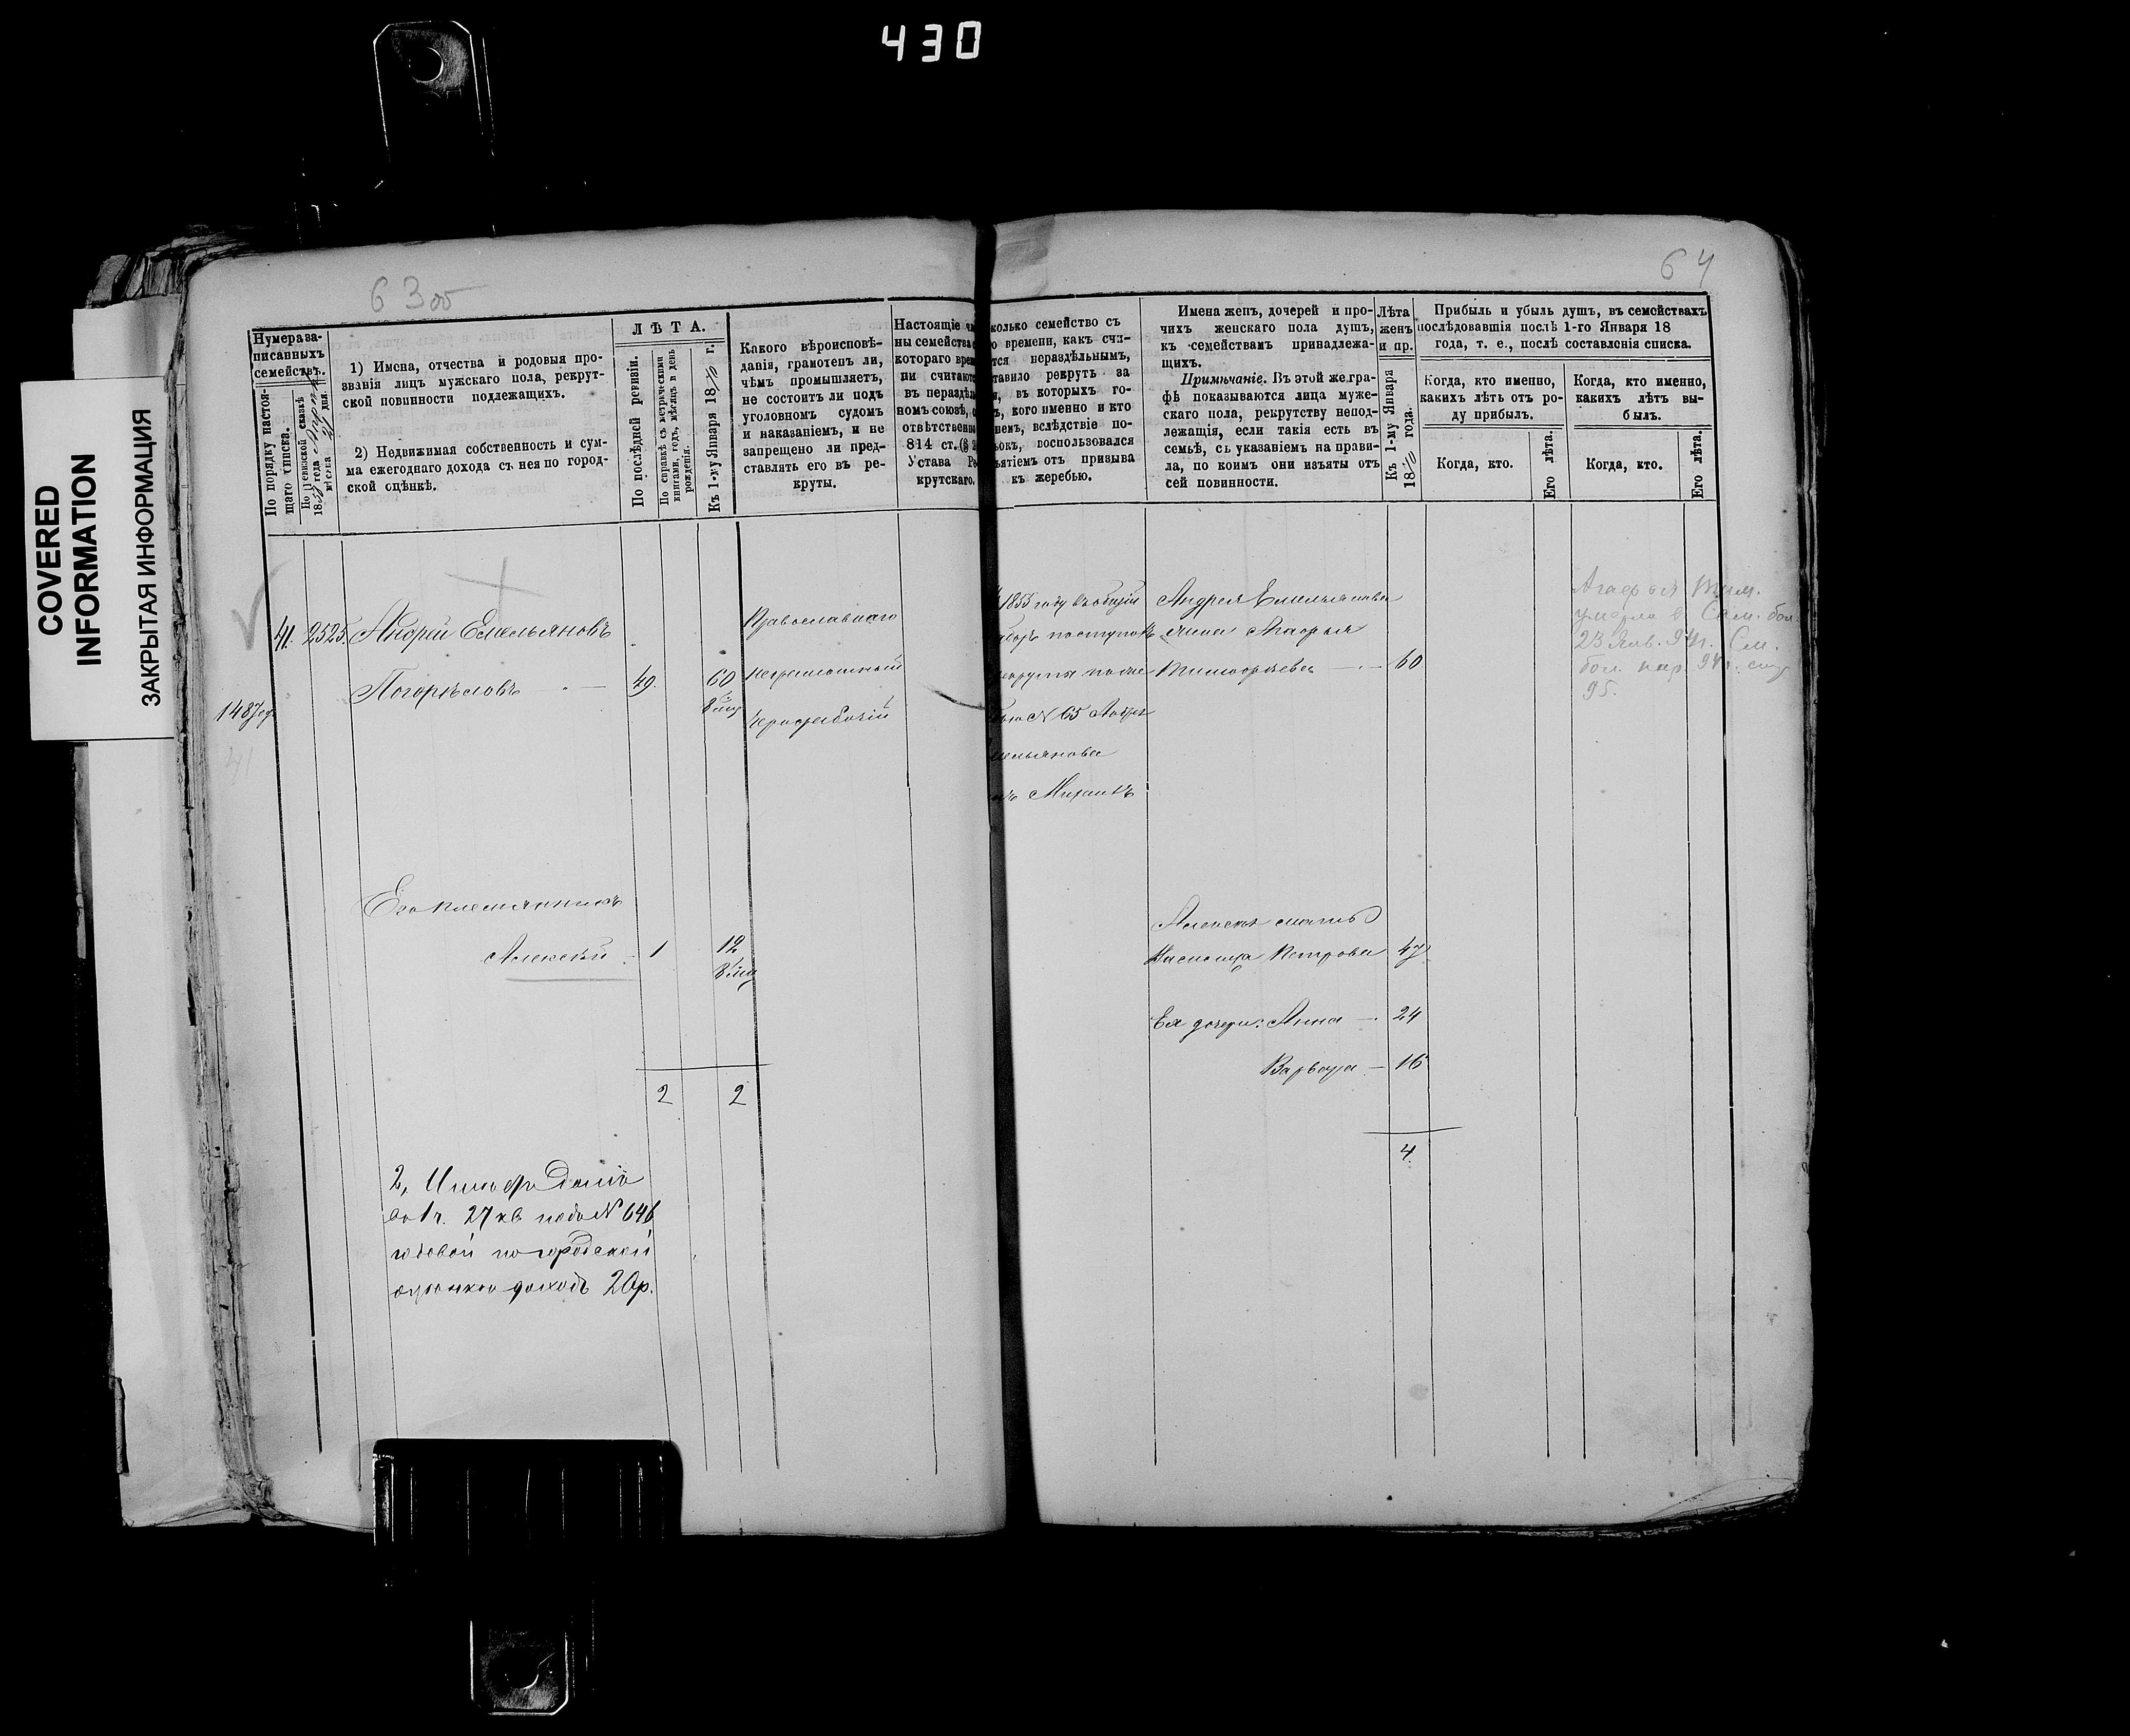 430
COVERED
INFORMATION
ЗАКРЫТАЯ ИНФОРМАЦИЯ
63об
64
Нумера за-
писанныхъ
семействъ.
По порядку настоя-
щаго списка.
По ревизской сказкѣ
18 года
мѣсяца дня.
1) Имена, отчества и родовыя про-
званія лицъ мужскаго пола, рекрут-
ской повинности подлежащихъ.
2) Недвижимая собственность и сум-
ма ежегоднаго дохода съ нея по город-
ской оцѣнкѣ.
ЛѢТА.
По послѣдней ревизіи.
По справкѣ съ метрическими
книгами, годъ, мѣсяцъ и день
рожденія.
Къ 1-му Января 1870 г.
Какого вѣроисповѣ-
данія, грамотенъ ли,
чѣмъ промышляетъ,
не состоитъ ли подъ
уголовномъ судомъ
и наказаніемъ, и не
запрещено ли пред-
ставлять его въ ре-
круты.
Настоящіе
ны семейства
котораго врем
ни считают
въ нераздѣл
номъ союзѣ,
отвѣтственны
814 ст.
Устава Ре
крутскаго.
колько семейство съ
о времени, какъ счи-
тся нераздѣльнымъ,
тавило рекрутъ за
въ которыхъ го-
кого именно и кто
немъ, вслѣдствіе по-
ьокъ, воспользовался
ъятіемъ отъ призыва
къ жеребью.
Имена женъ, дочерей и про-
чихъ женскаго пола душъ,
къ семействамъ принадлежа-
щихъ.
Примѣчаніе. Въ этой же гра-
фѣ показываются лица муже-
скаго пола, рекрутству непод-
лежащія, если такія есть въ
семьѣ, съ указаніемъ на прави-
ла, по коимъ они изъяты отъ
сей повинности.
Лѣта
женъ
и пр.
Къ 1-му Января
1870 года.
Прибыль и убыль душъ, въ семействахъ
послѣдовавшія послѣ 1-го Января 18
года, т. е., послѣ составленія списка.
Когда, кто именно,
какихъ лѣтъ отъ ро-
ду прибылъ.
Когда, кто именно,
какихъ лѣтъ вы-
былъ.
Когда, кто.
Его лѣта.
Когда, кто.
Его лѣта.
41. 2525. Андрей Емельяновъ
Погорѣловъ 49. 60
Православнаго
неграмотный
чернорабочій
1853 году въ общій
наборъ поступилъ
рекруты по
№ 65 Андрея
Емельянова
Михаилъ
Андрея Емельянова
жена Агафья
Тимофеева 60
Агафья Тим.
умерла в Сам. бол.
23 Янв. 94г. См.
95.
1487
41
Его племянникъ
Алексѣй 1 12
Алексѣя мать
Петрова 47
Ея дочери: Анна 24
Варвара 16
2 2
4.
2, Имѣетъ домъ
во 1 ч. 27 кв подъ № 646
годовой по городской
оцѣнкѣ доходъ 20р.